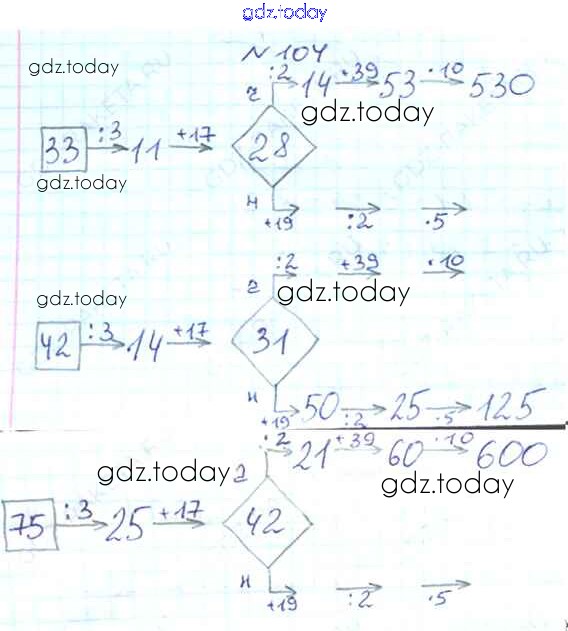 gdz.today
№ 104
gdz.today
:2 14 +39 53 ·10 530
ч
gdz.today
33 :3 11 +17 28
gdz.today
н
+19 :2 ·5
:2 +39 ·10
ч gdz.today
gdz.today
42 :3 14 +17 31
н
+19 50 :2 25 ·5 125
:2 21 +39 60 ·10 600
gdz.today ч gdz.today
75 :3 25 +17 42
н
+19 :2 ·5